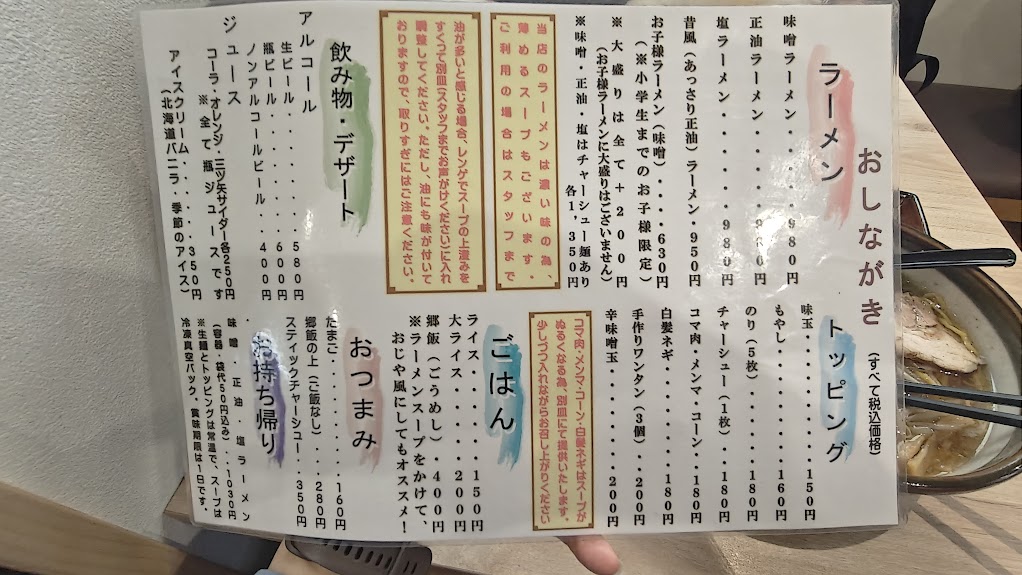 おしながき
(すべて税込価格)
ラーメン
味噌ラーメン・・・・980円
正油ラーメン・・・・980円
塩ラーメン・・・・・980円
昔風(あっさり正油)ラーメン・950円
お子様ラーメン(味噌)・・・630円
(※小学生までのお子様限定)
※大盛りは全て+200円
(お子様ラーメンに大盛りはございません)
※味噌・正油・塩はチャーシュー麺あり
各1,350円
当店のラーメンは濃い味の為、
薄めるスープもございます。
ご利用の場合はスタッフまで
油が多いと感じる場合、レンゲでスープの上澄みを
すくって別皿(スタッフまでお声がけください)に入れ
調整してください。ただし、油にも味が付いて
おりますので、取りすぎにはご注意ください。
飲み物・デザート
アルコール
生ビール・・・・・・580円
瓶ビール・・・・・・600円
ノンアルコールビール・・400円
ジュース
コーラ・オレンジ・三ツ矢サイダー各250円
※全て瓶ジュースです
アイスクリーム・・・・・350円
(北海道バニラ・季節のアイス)
トッピング
味玉・・・・・・・・・150円
もやし・・・・・・・・160円
のり(5枚)・・・・・・180円
チャーシュー(1枚)・・・180円
コマ肉・メンマ・コーン・・180円
白髪ネギ・・・・・・・180円
手作りワンタン(3個)・・200円
辛味噌玉・・・・・・・200円
コマ肉・メンマ・コーン・白髪ネギはスープが
ぬるくなる為、別皿にて提供いたします。
少しづつ入れながらお召し上がりください
ごはん
ライス・・・・・・・150円
大ライス・・・・・・200円
郷飯(ごうめし)・・・400円
※ラーメンスープをかけて、
おじや風にしてもオススメ!
おつまみ
たまご・・・・・・・・160円
郷飯の上(ご飯なし)・・・280円
スティックチャーシュー・・350円
お持ち帰り
・味噌・正油・塩ラーメン
(容器・袋代50円込み)・・・1030円
※生麺とトッピングは常温で、スープは
冷凍真空パック、賞味期限は1日です。